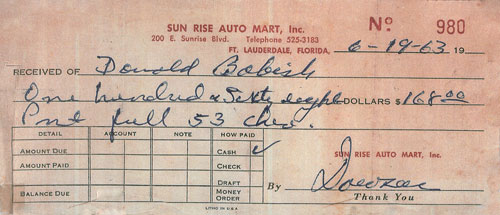 SUN RISE AUTO MART, Inc. Nº 980
200 E. Sunrise Blvd. Telephone 525-3183
FT. LAUDERDALE, FLORIDA, 6-19-63 19
RECEIVED OF Donald Bobish
One hundred & Sixty eight DOLLARS $ 168.00
Pmt full 53 Chev.
DETAIL ACCOUNT NOTE HOW PAID
AMOUNT DUE CASH ✓
AMOUNT PAID CHECK
DRAFT
BALANCE DUE MONEY ORDER
SUN RISE AUTO MART, Inc.
By
Thank You
LITHO IN U.S.A.